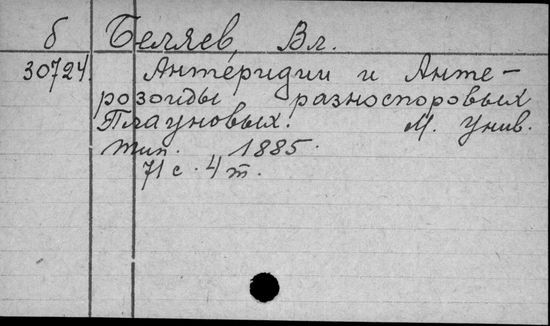 б Беляев, Вл.
30724. Антеридии и Анте-
розоиды разноспоровых
Плауновых. М. Унив.
тип. 1885.
71 с. 4 т.